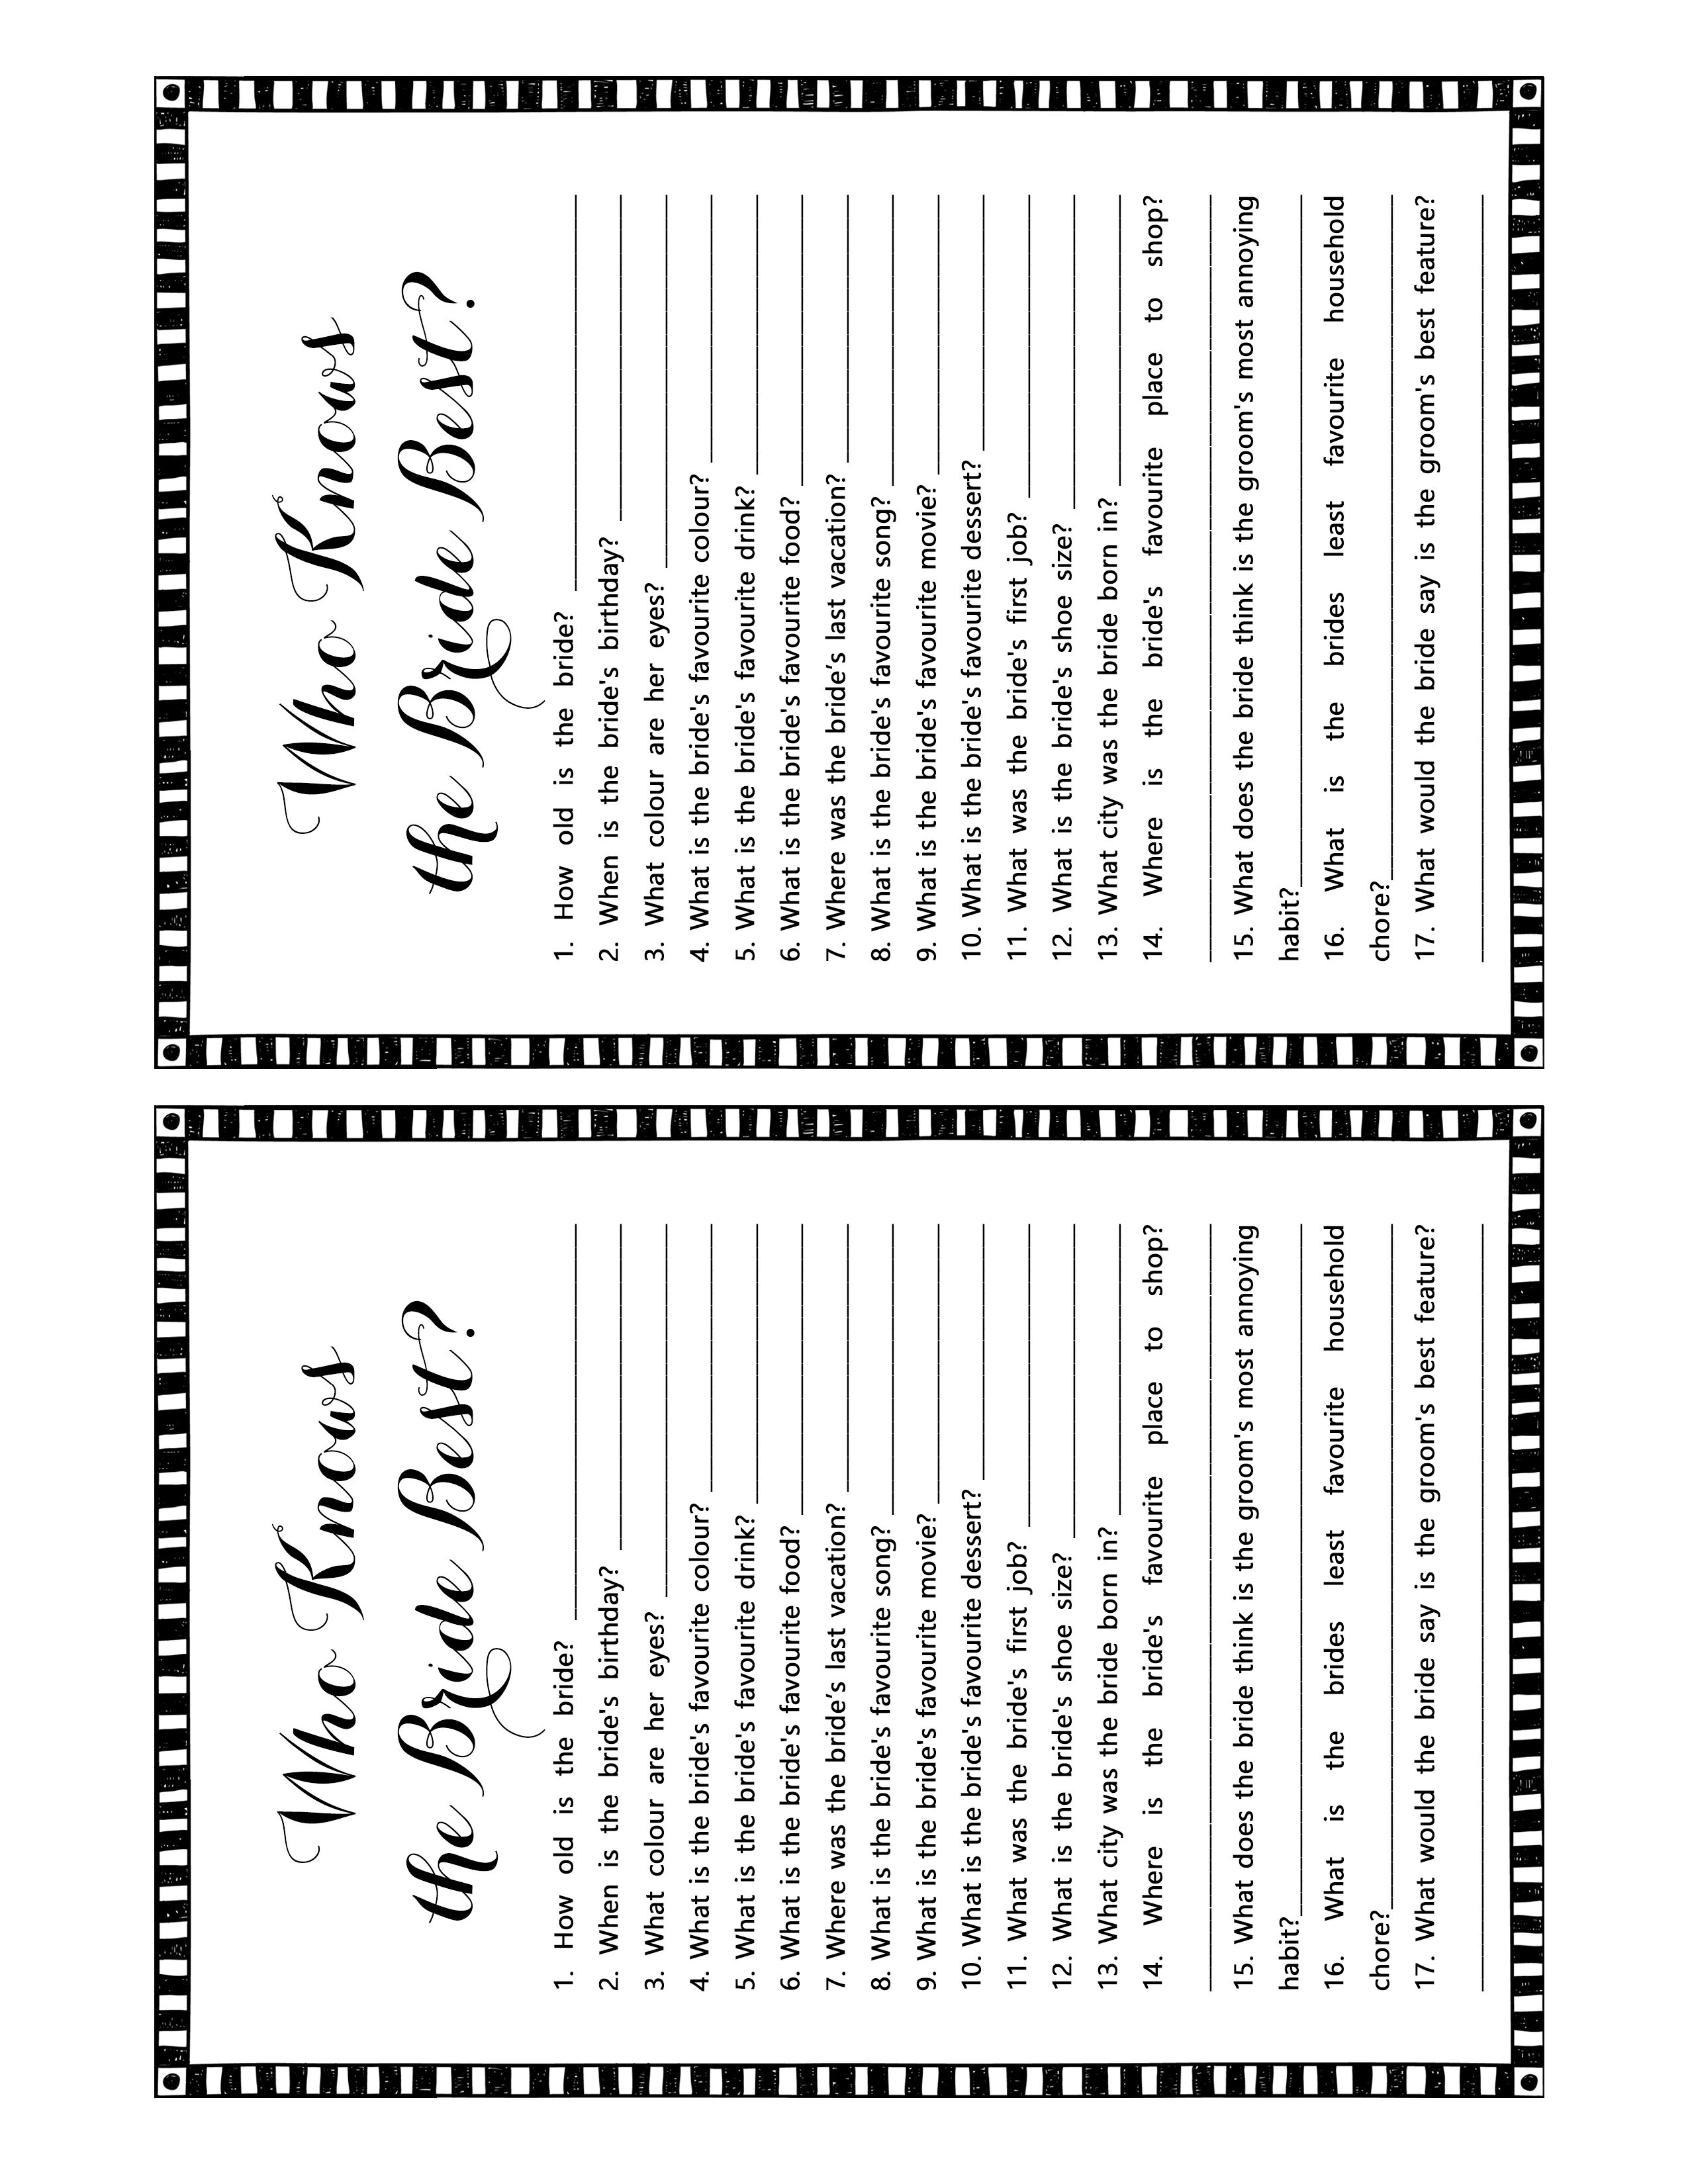 Who Knows
the Bride Best?
1. How old is the bride?
2. When is the bride's birthday?
3. What colour are her eyes?
4. What is the bride's favourite colour?
5. What is the bride's favourite drink?
6. What is the bride's favourite food?
7. Where was the bride's last vacation?
8. What is the bride's favourite song?
9. What is the bride's favourite movie?
10. What is the bride's favourite dessert?
11. What was the bride's first job?
12. What is the bride's shoe size?
13. What city was the bride born in?
14. Where is the bride's favourite place to shop?
15. What does the bride think is the groom's most annoying
habit?
16. What is the brides least favourite household
chore?
17. What would the bride say is the groom's best feature?
Who Knows
the Bride Best?
1. How old is the bride?
2. When is the bride's birthday?
3. What colour are her eyes?
4. What is the bride's favourite colour?
5. What is the bride's favourite drink?
6. What is the bride's favourite food?
7. Where was the bride's last vacation?
8. What is the bride's favourite song?
9. What is the bride's favourite movie?
10. What is the bride's favourite dessert?
11. What was the bride's first job?
12. What is the bride's shoe size?
13. What city was the bride born in?
14. Where is the bride's favourite place to shop?
15. What does the bride think is the groom's most annoying
habit?
16. What is the brides least favourite household
chore?
17. What would the bride say is the groom's best feature?